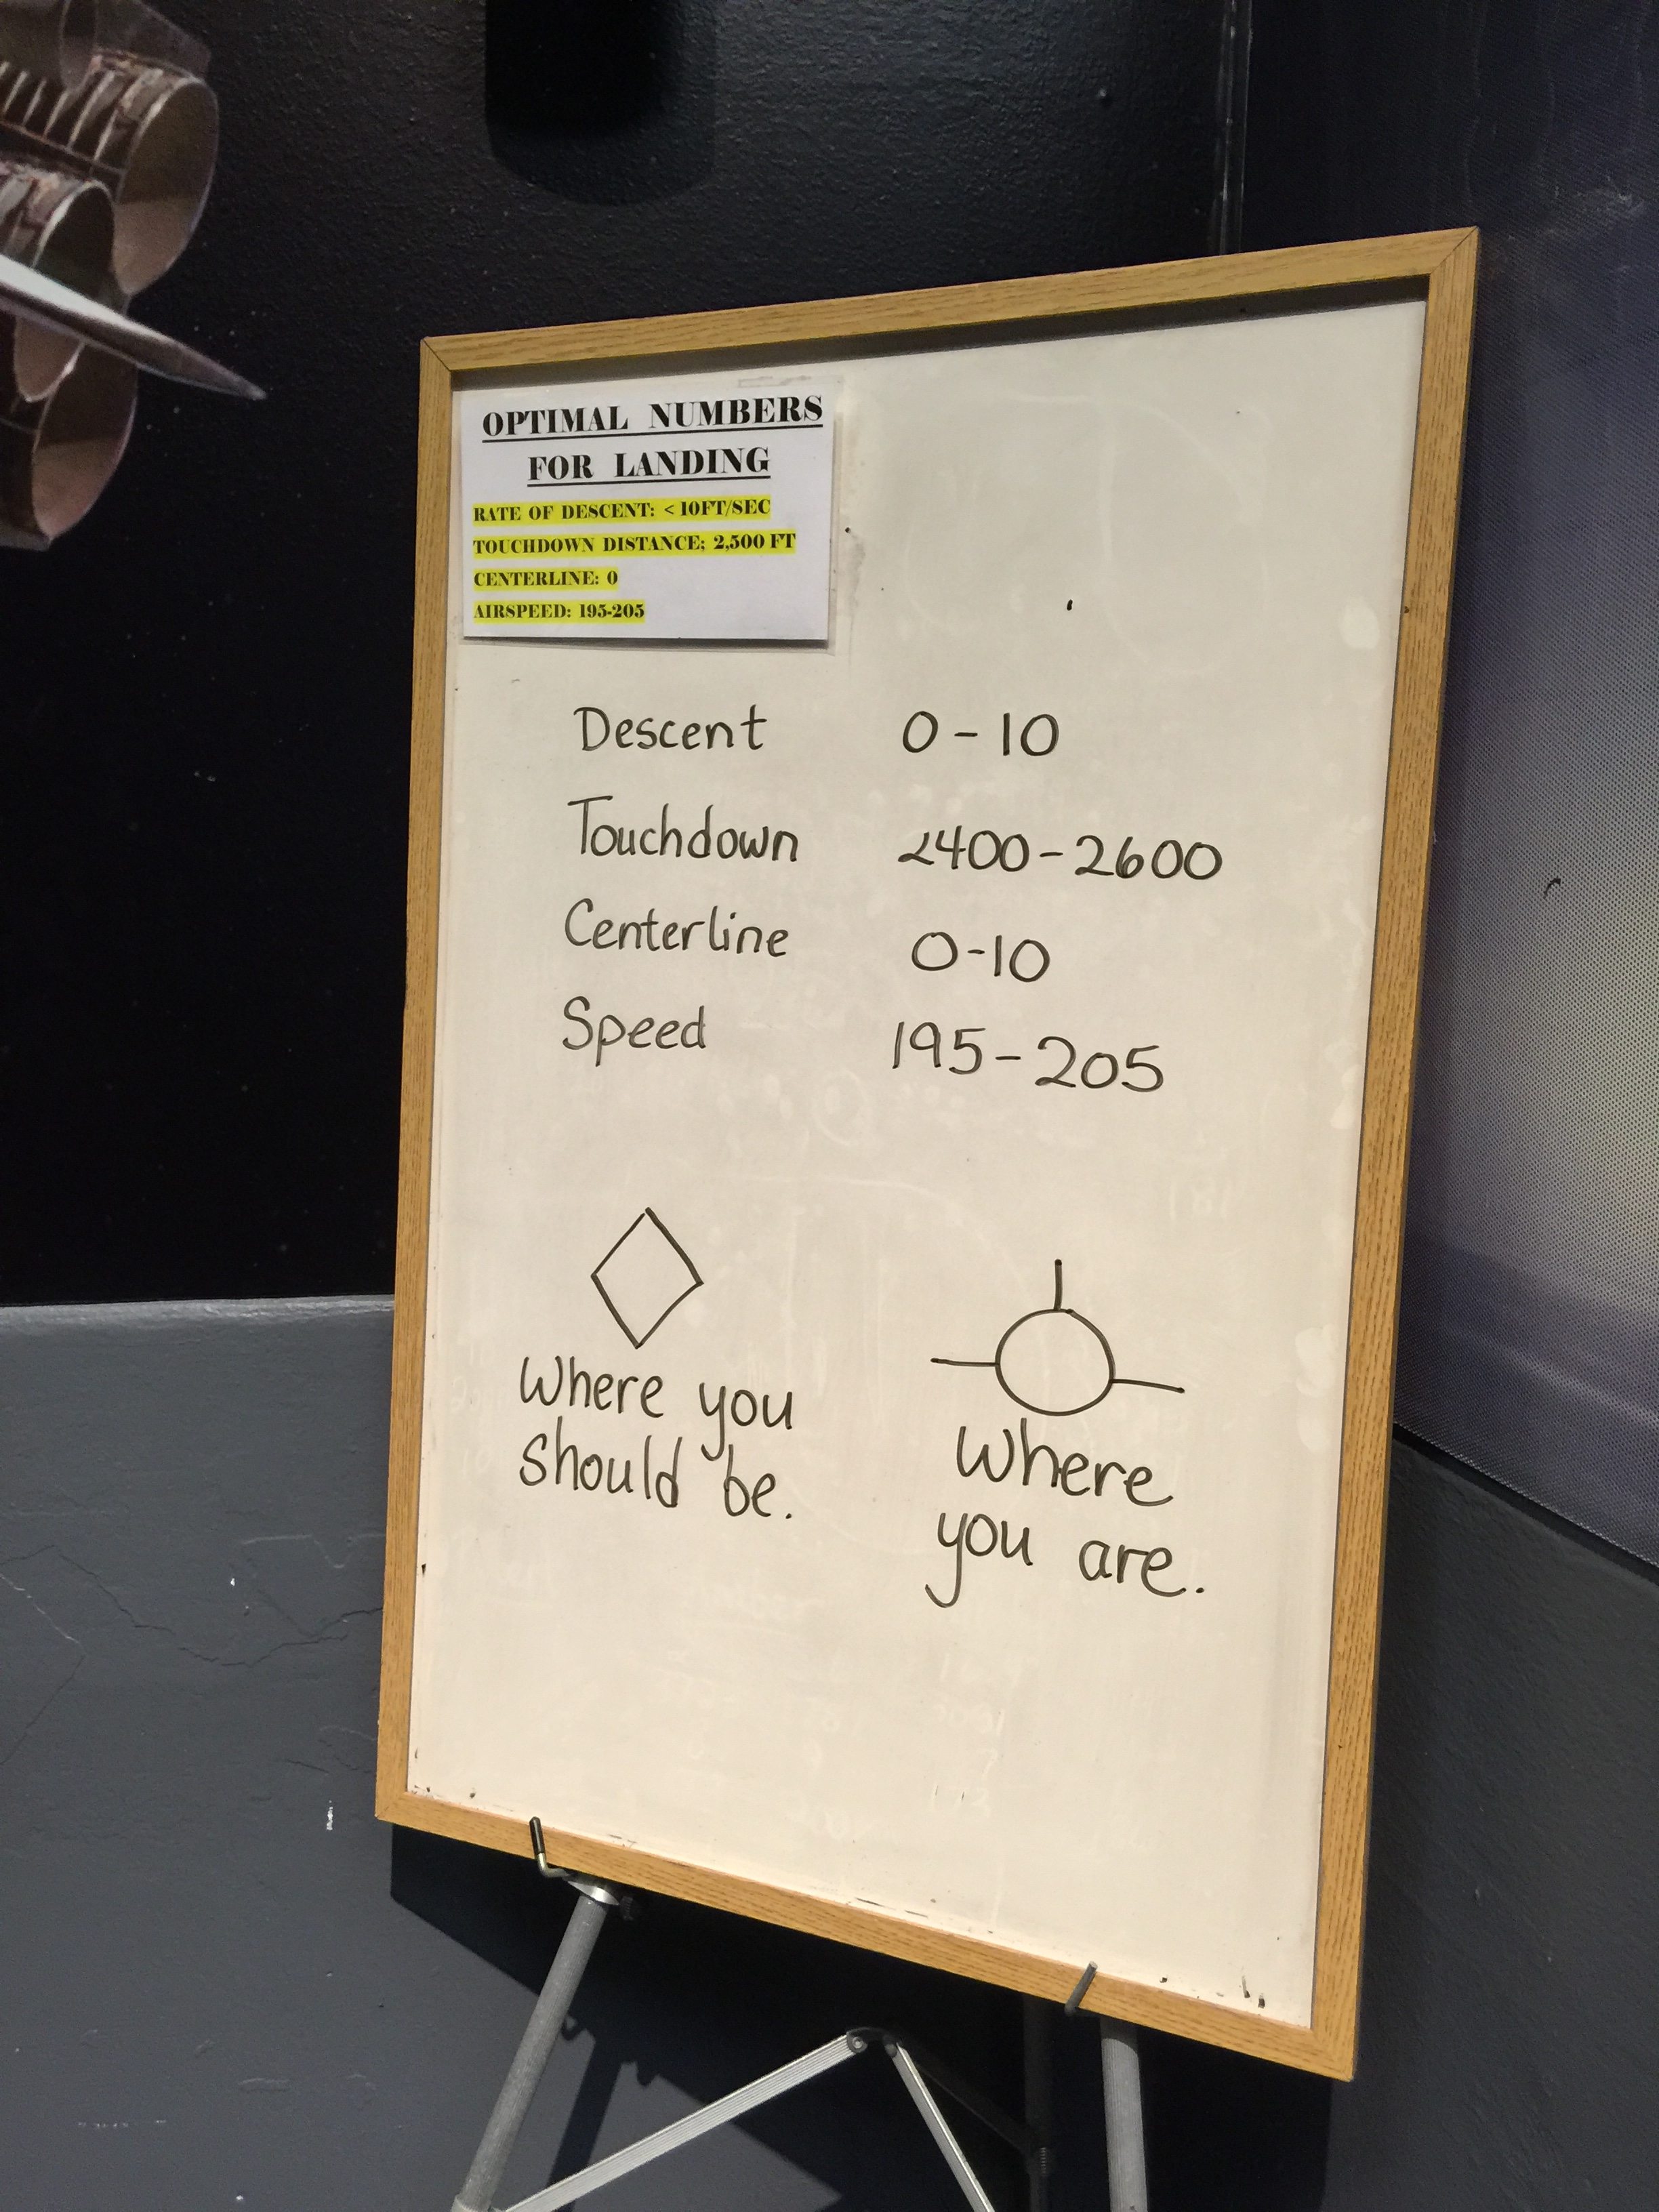 OPTIMAL NUMBERS
FOR LANDING
RATE OF DESCENT: < 10FT/SEC
TOUCHDOWN DISTANCE; 2,500 FT
CENTERLINE: 0
AIRSPEED: 195-205
Descent 0-10
Touchdown 2400-2600
Centerline 0-10
Speed 195-205
Where you
should be.
Where
you are.